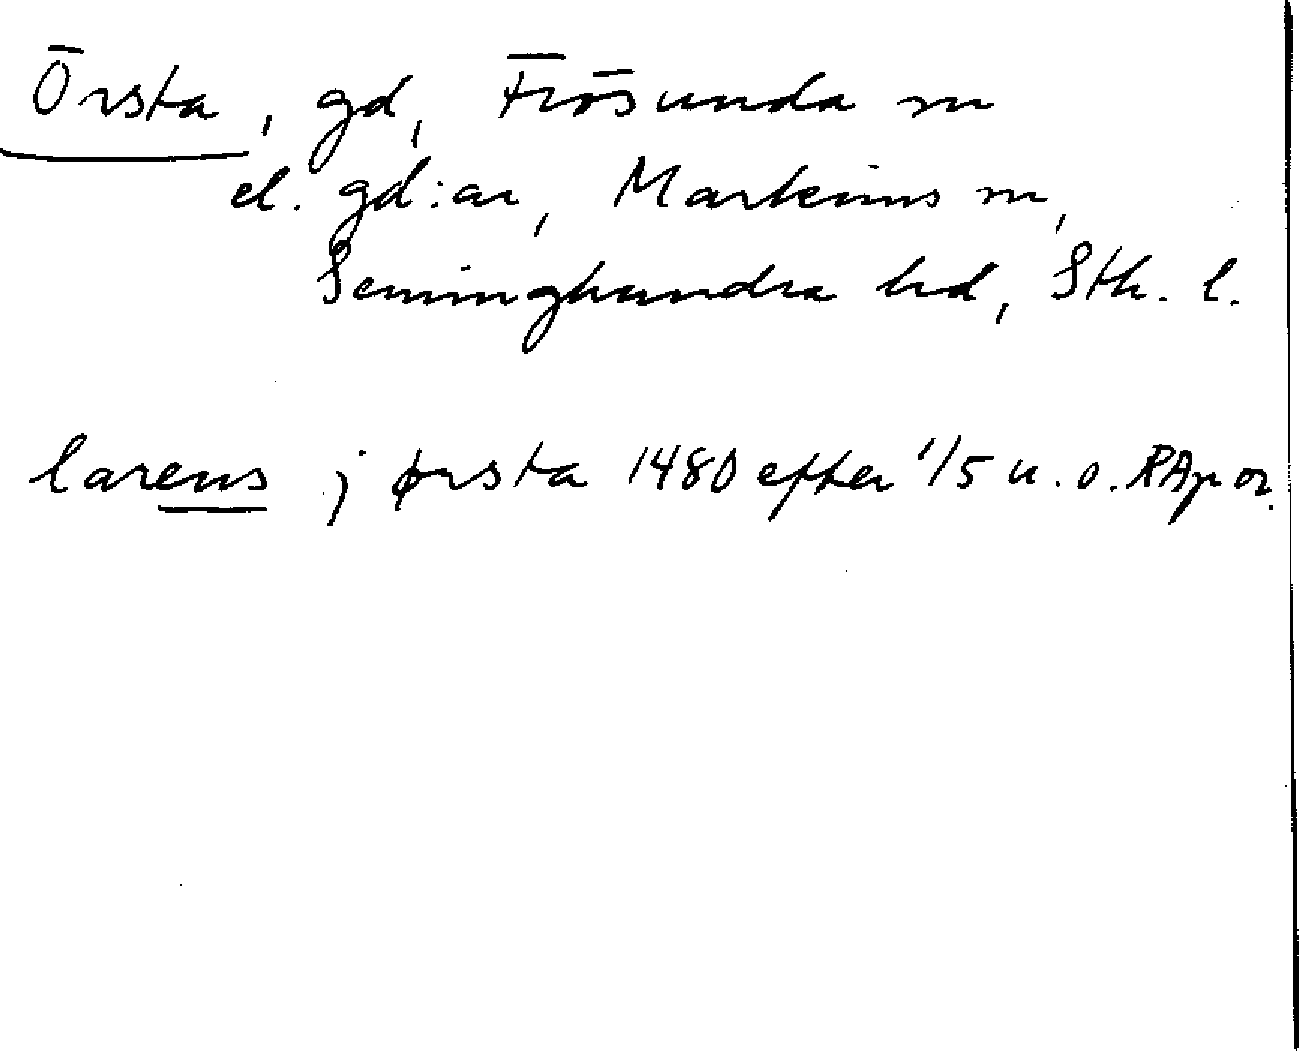 Örsta, gd, Frösunda sn
el. gd:ar, Markims sn,
Seminghundra hd, Sth. l.
larens j ørsta 1480 efter 1/5 u. o. RAp or.